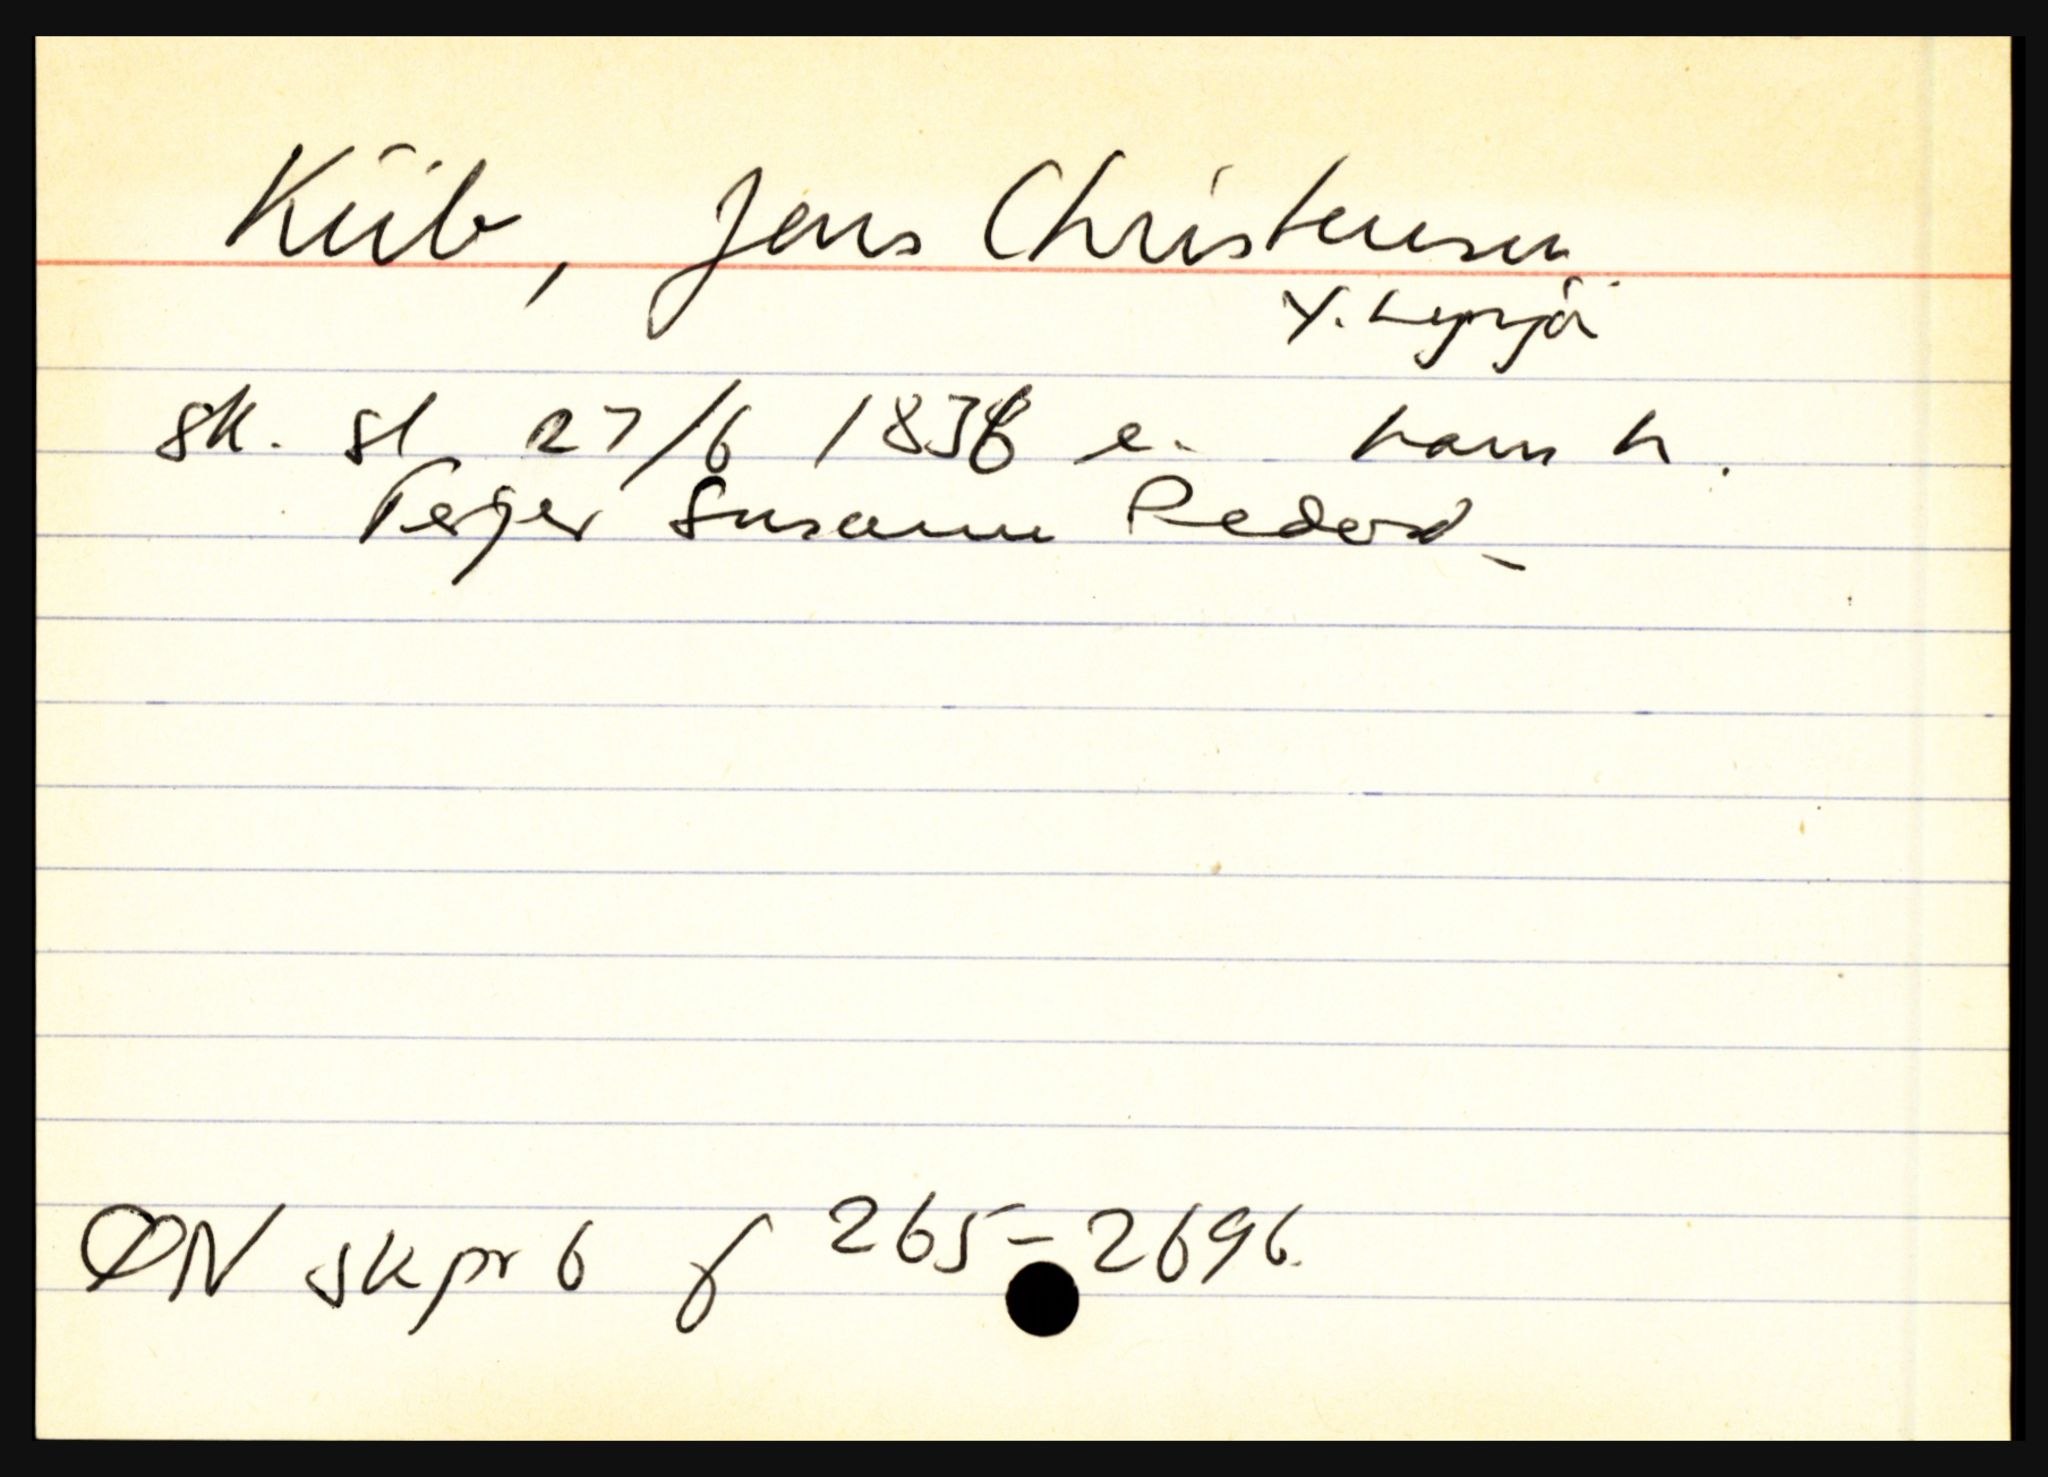 Küb, Jens Christensen
Y. Lyngør
sk. sl 27/6 1836 e. hans h.
Terjer Susanne Pedersd.
ØN skpr 6 f 265-269b.